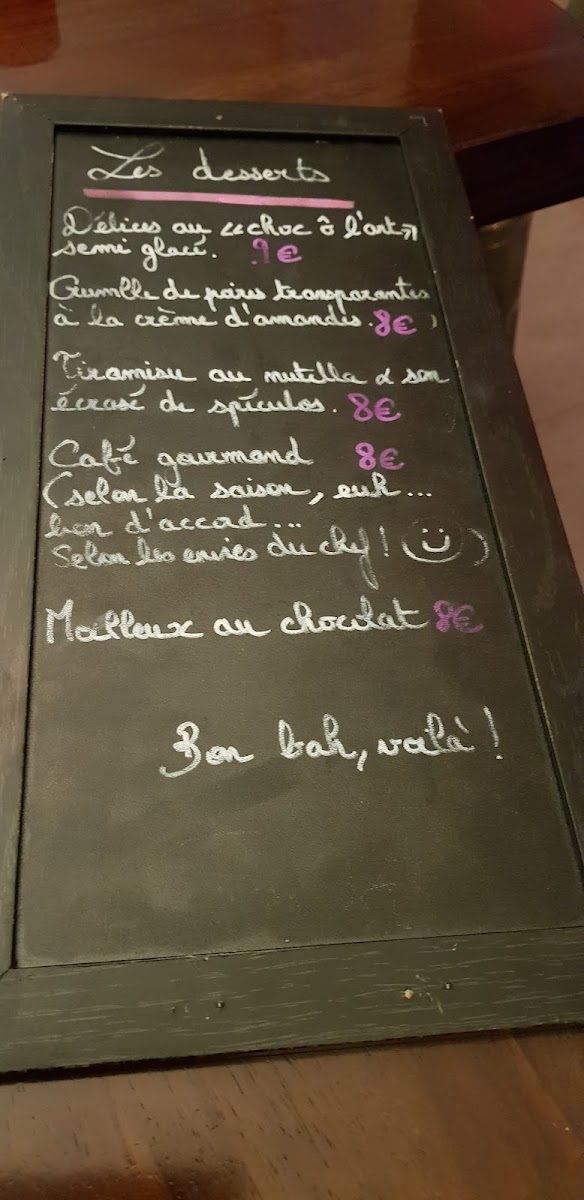 Les desserts
Délices au "choc ô l'art"
semi glacé. 9€
Crumble de poires transparantes
à la crème d'amandes. 8€
Tiramisu au nutella & son
écrasé de spéculos. 8€
Café gourmand 8€
(selon la saison, euh...
bon d'accord...
Selon les envies du chef! ☺)
Moelleux au chocolat 8€
Bon bah, voilà!